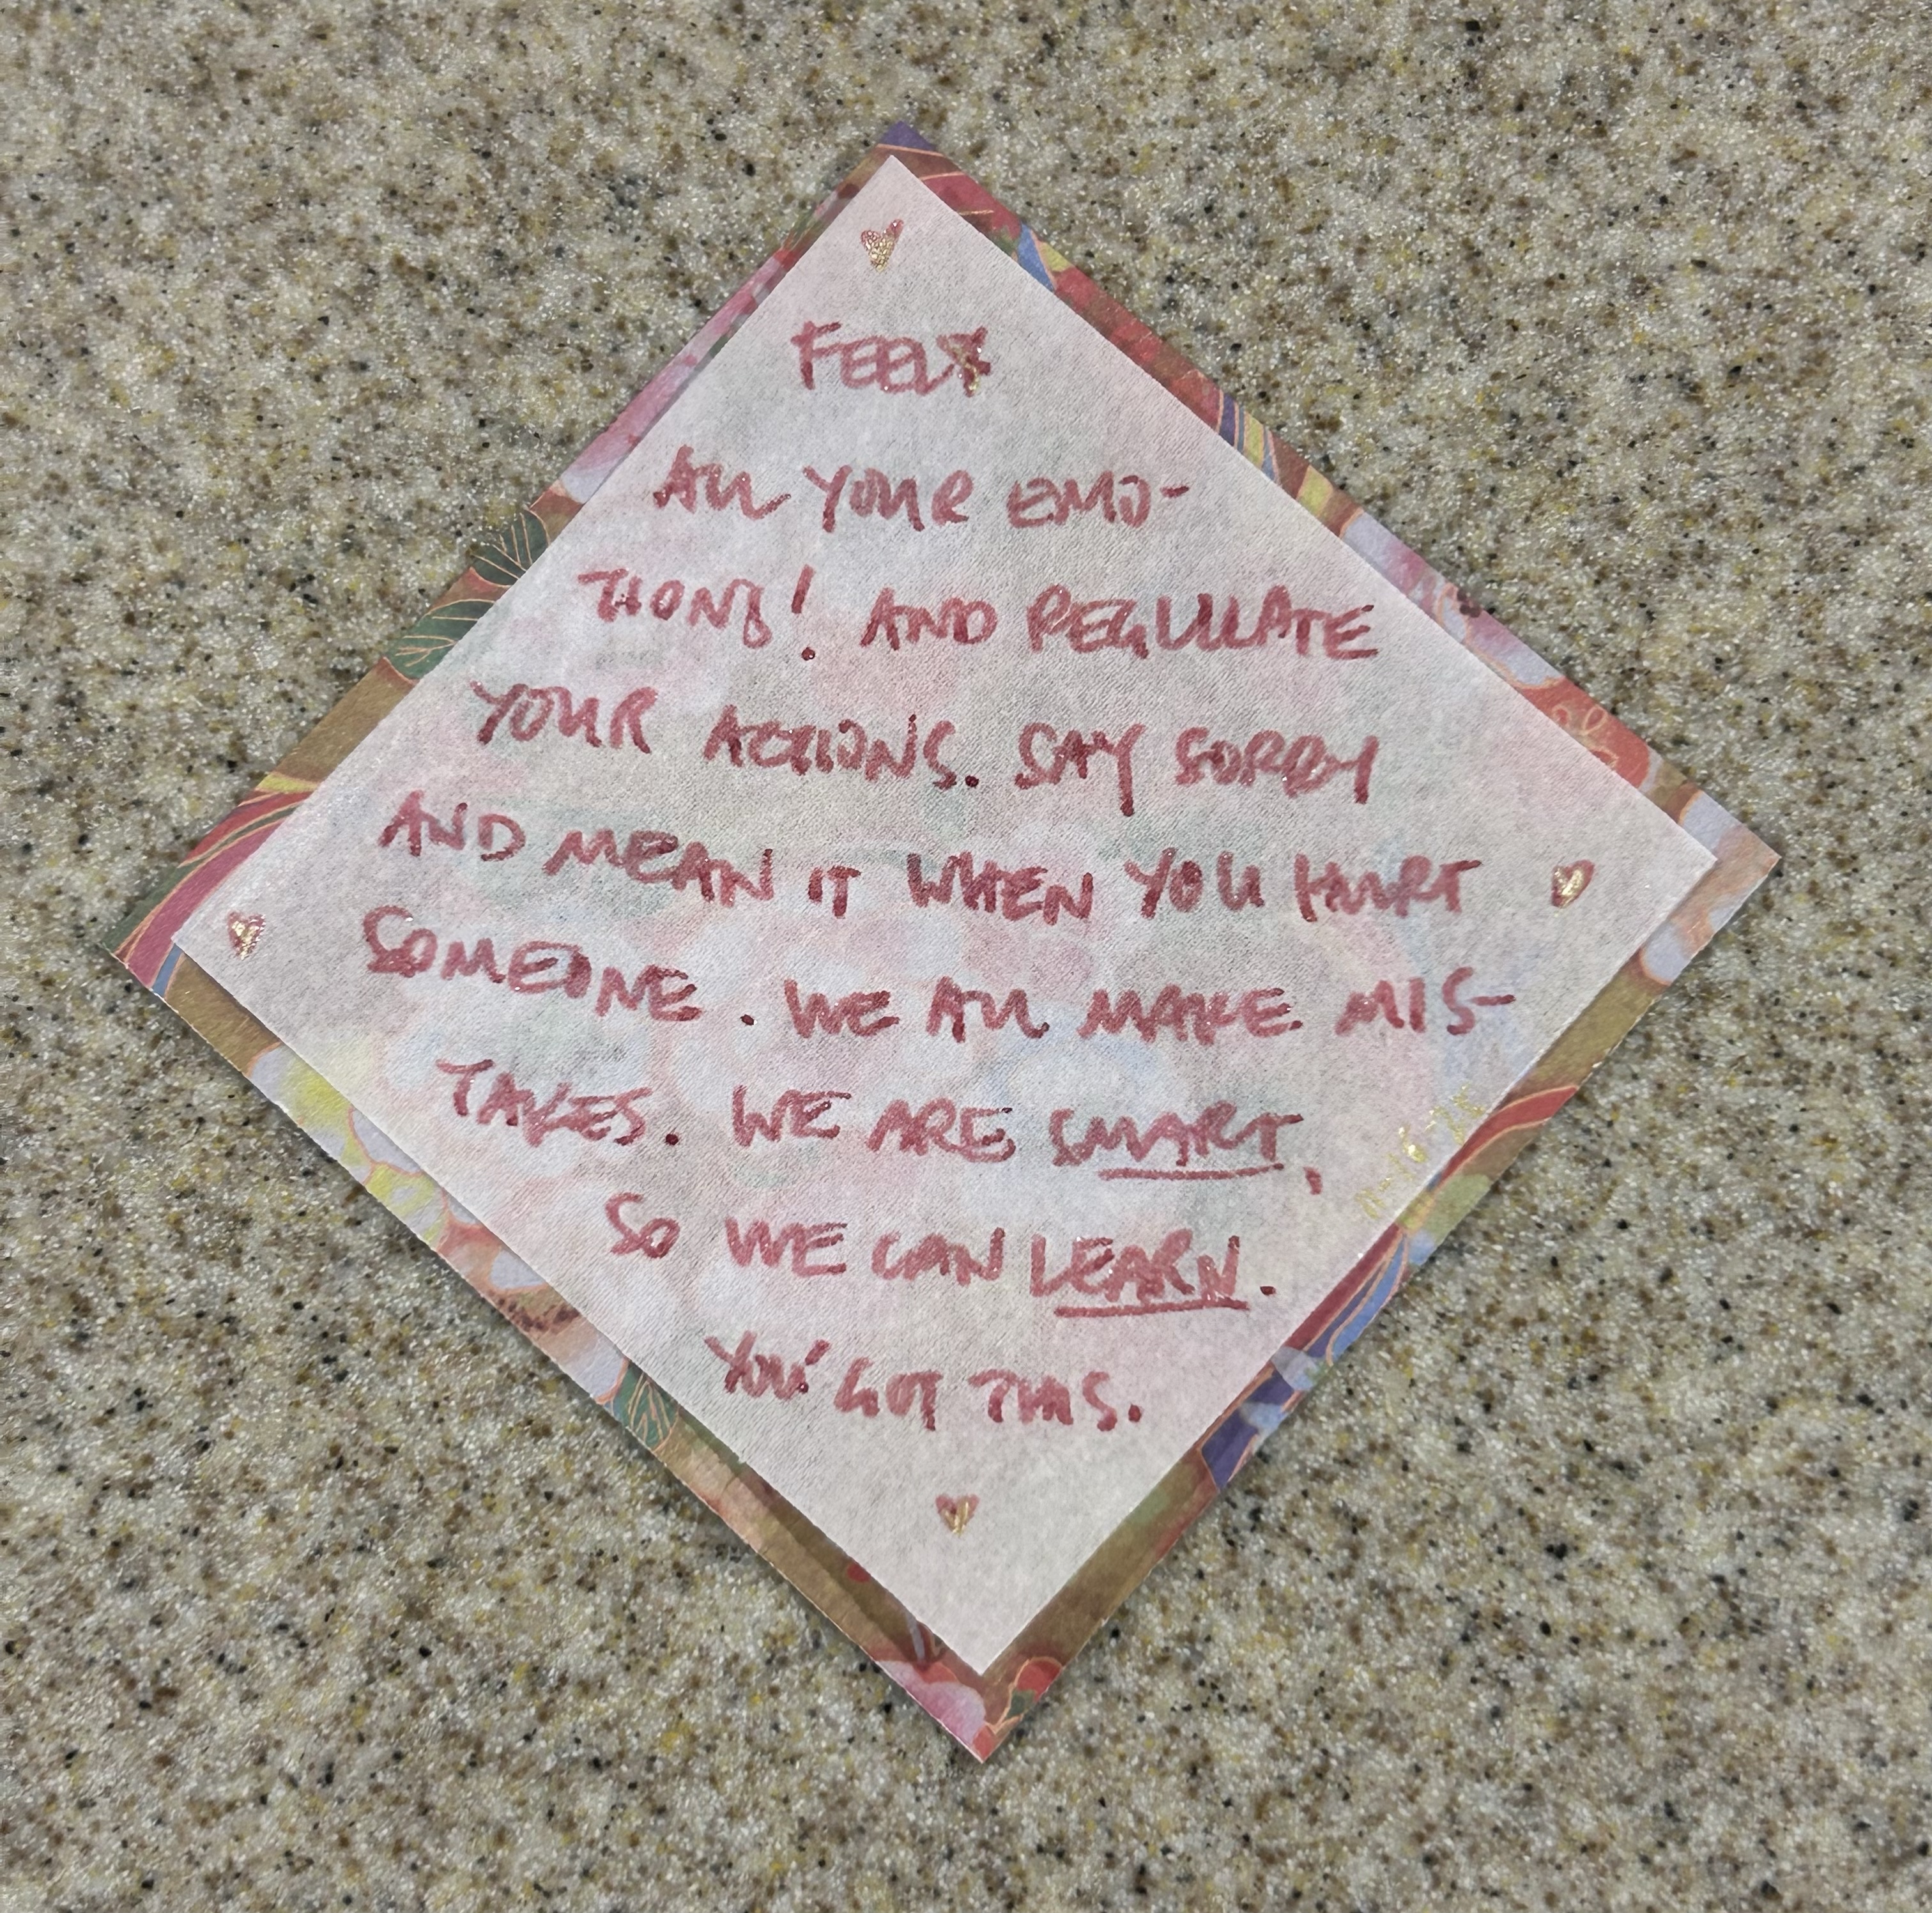 FEEL
ALL YOUR EMO-
TIONS! AND REGULATE
YOUR ACTIONS. SAY SORRY
AND MEAN IT WHEN YOU HURT
SOMEONE. WE ALL MAKE MIS-
TAKES. WE ARE SMART,
SO WE CAN LEARN.
YOU'GOT THIS.